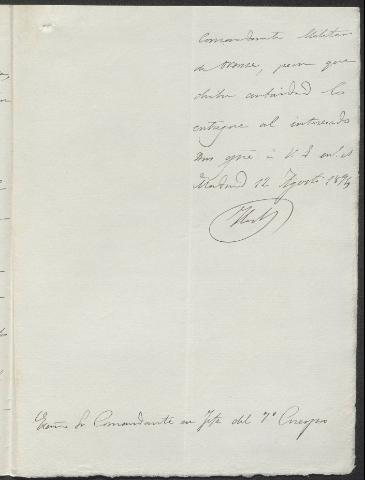 Comandante Militar
de Orense, para que
dicha autoridad los
entregue al interesado
Dios gue á V. E. ms. as
Madrid 12 Agosto 1894
Excmo Sr Comandante en Jefe del 7º Cuerpo